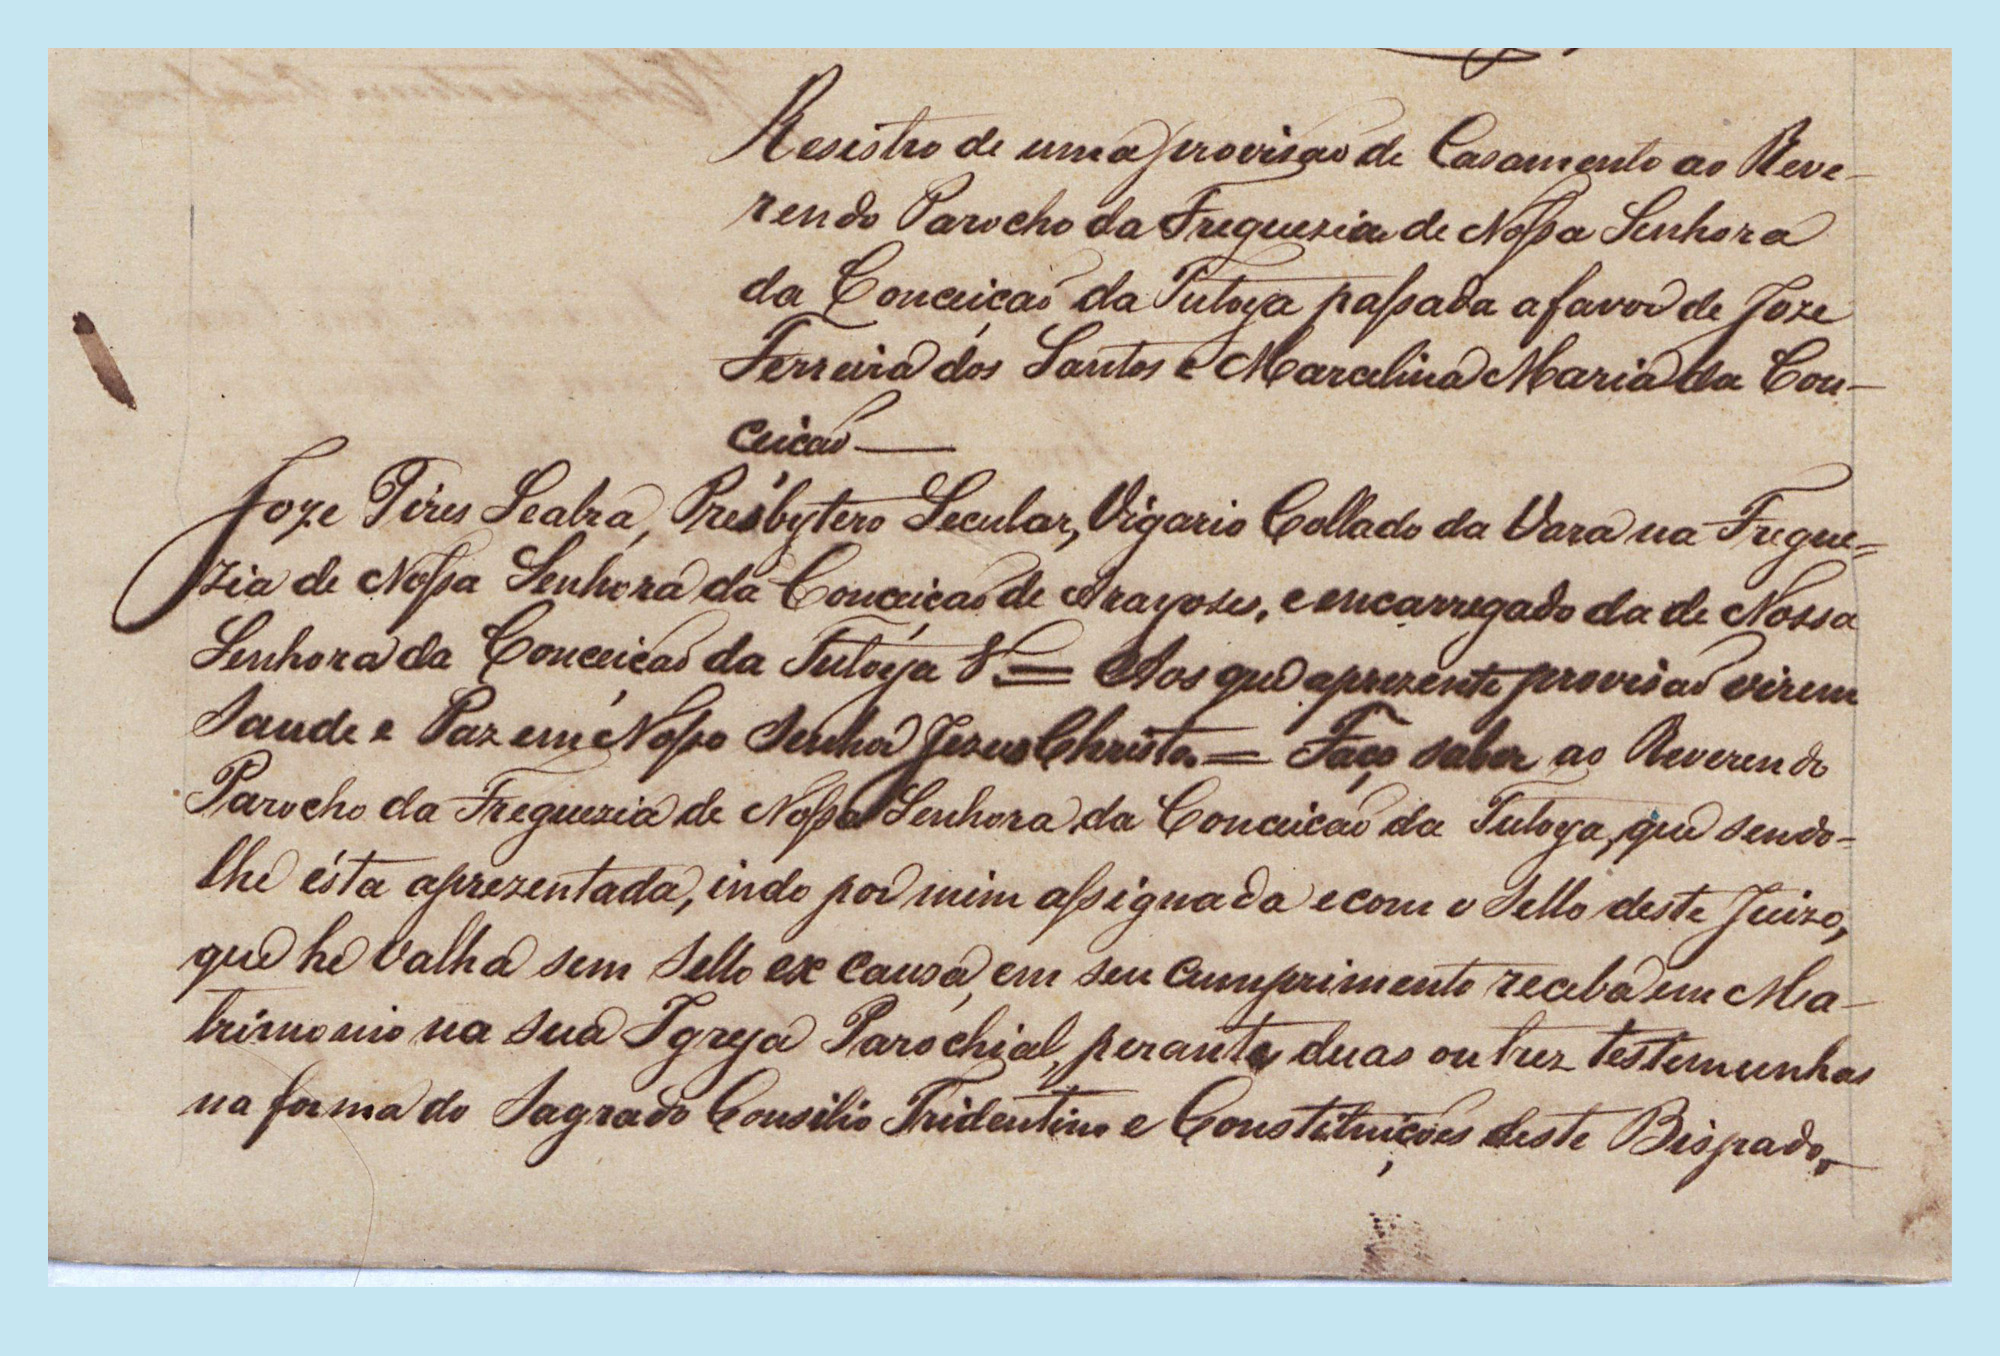 Resistro de uma provisaõ de Casamento ao Reve-
rendo Parocho da Freguezia de Nossa Senhora
da Conceiçaõ da Tutoya passada a favor de Joze
Ferreira dos Santos e Marcelina Maria da Con-
ceicaõ —
Joze Pires Seabra, Presbytero Secular, Vigario Collado da Vara na Fregue=
zia de Nossa Senhora da Conceiçaõ de Arayoses, e encarregado da de Nossa
Senhora da Conceiçaõ da Tutoya &.= Aos que a prezente provisaõ virem
Saude e Paz em Nosso Senhor Jezus Christo = Faço saber ao Reverendo
Parocho da Freguezia de Nossa Senhora da Conceicaõ da Tutoya, que sendo-
lhe ésta aprezentada, indo por mim assignada e com o Sello deste Juizo,
que he Valha sem Sello ex causa, em seu cumprimento receba em Ma-
trimonio na sua Igreja Parochial, perante duas ou trez testemunhas
na forma do Sagrado Consilio Tridentino e Constituições deste Bispado,